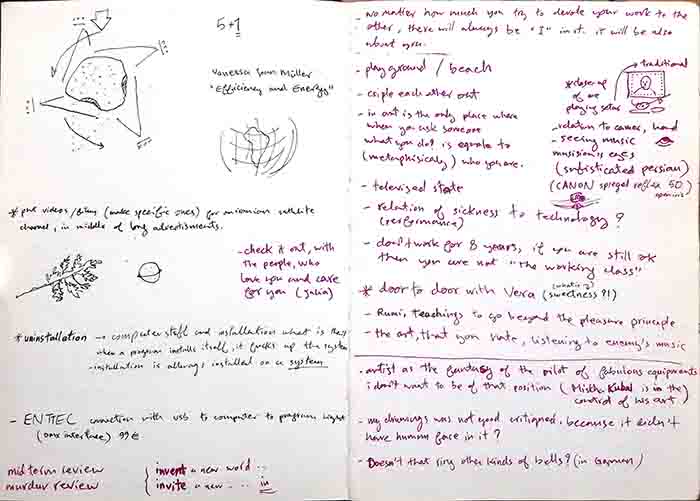 5+1
Vanessa Joan Müller
"Efficiency and Energy"
* put videos/films (make specific ones) for iranian satelite
channel, in middle of long advertisments.
- check it out, with
the people, who
love you and care
for you (julia)
* uninstallation → computer stuff and installation what is they
when a program installs itself, it fucks up the system
- installation is allways installed on a system
- ENTTEC connection with usb to computer to program light
(dmx interface) 99 €
midterm review
murder review
invent a new word ...
invite a new .... in
- no matter how much you try to devote your work to the
other, there will always be "I" in it. it will be also
about you.
- play ground / beach
- cople each other out
- in art is the only place where
when you ask someone
what you do? is equale to
(metaphisicaly) who you are.
- televised state
- relation of sickness to technology?
(performance)
- don't work for 8 years, if you are still ok
then you are not "the working class"
* door to door with Vera (what is? sweetness?!)
- Rumi, teachings to go beyond the pleasure principle
- the art, that you hate, listening to enemy's music
traditional
* close up
of me
playing setar
- relation to camera, hand
- seeing music
musision's eyes
(sofisticated persian)
(CANON spiegel reflex 50)
- artist as the fantasy of the pilot of fabulous equipments
i don't want to be of that position (Mischa Kuball is in the
control of his art)
- my drawings was not good critiqued, because it didn't
have human face in it?
- Doesn't that ring other kinds of bells? (in German)